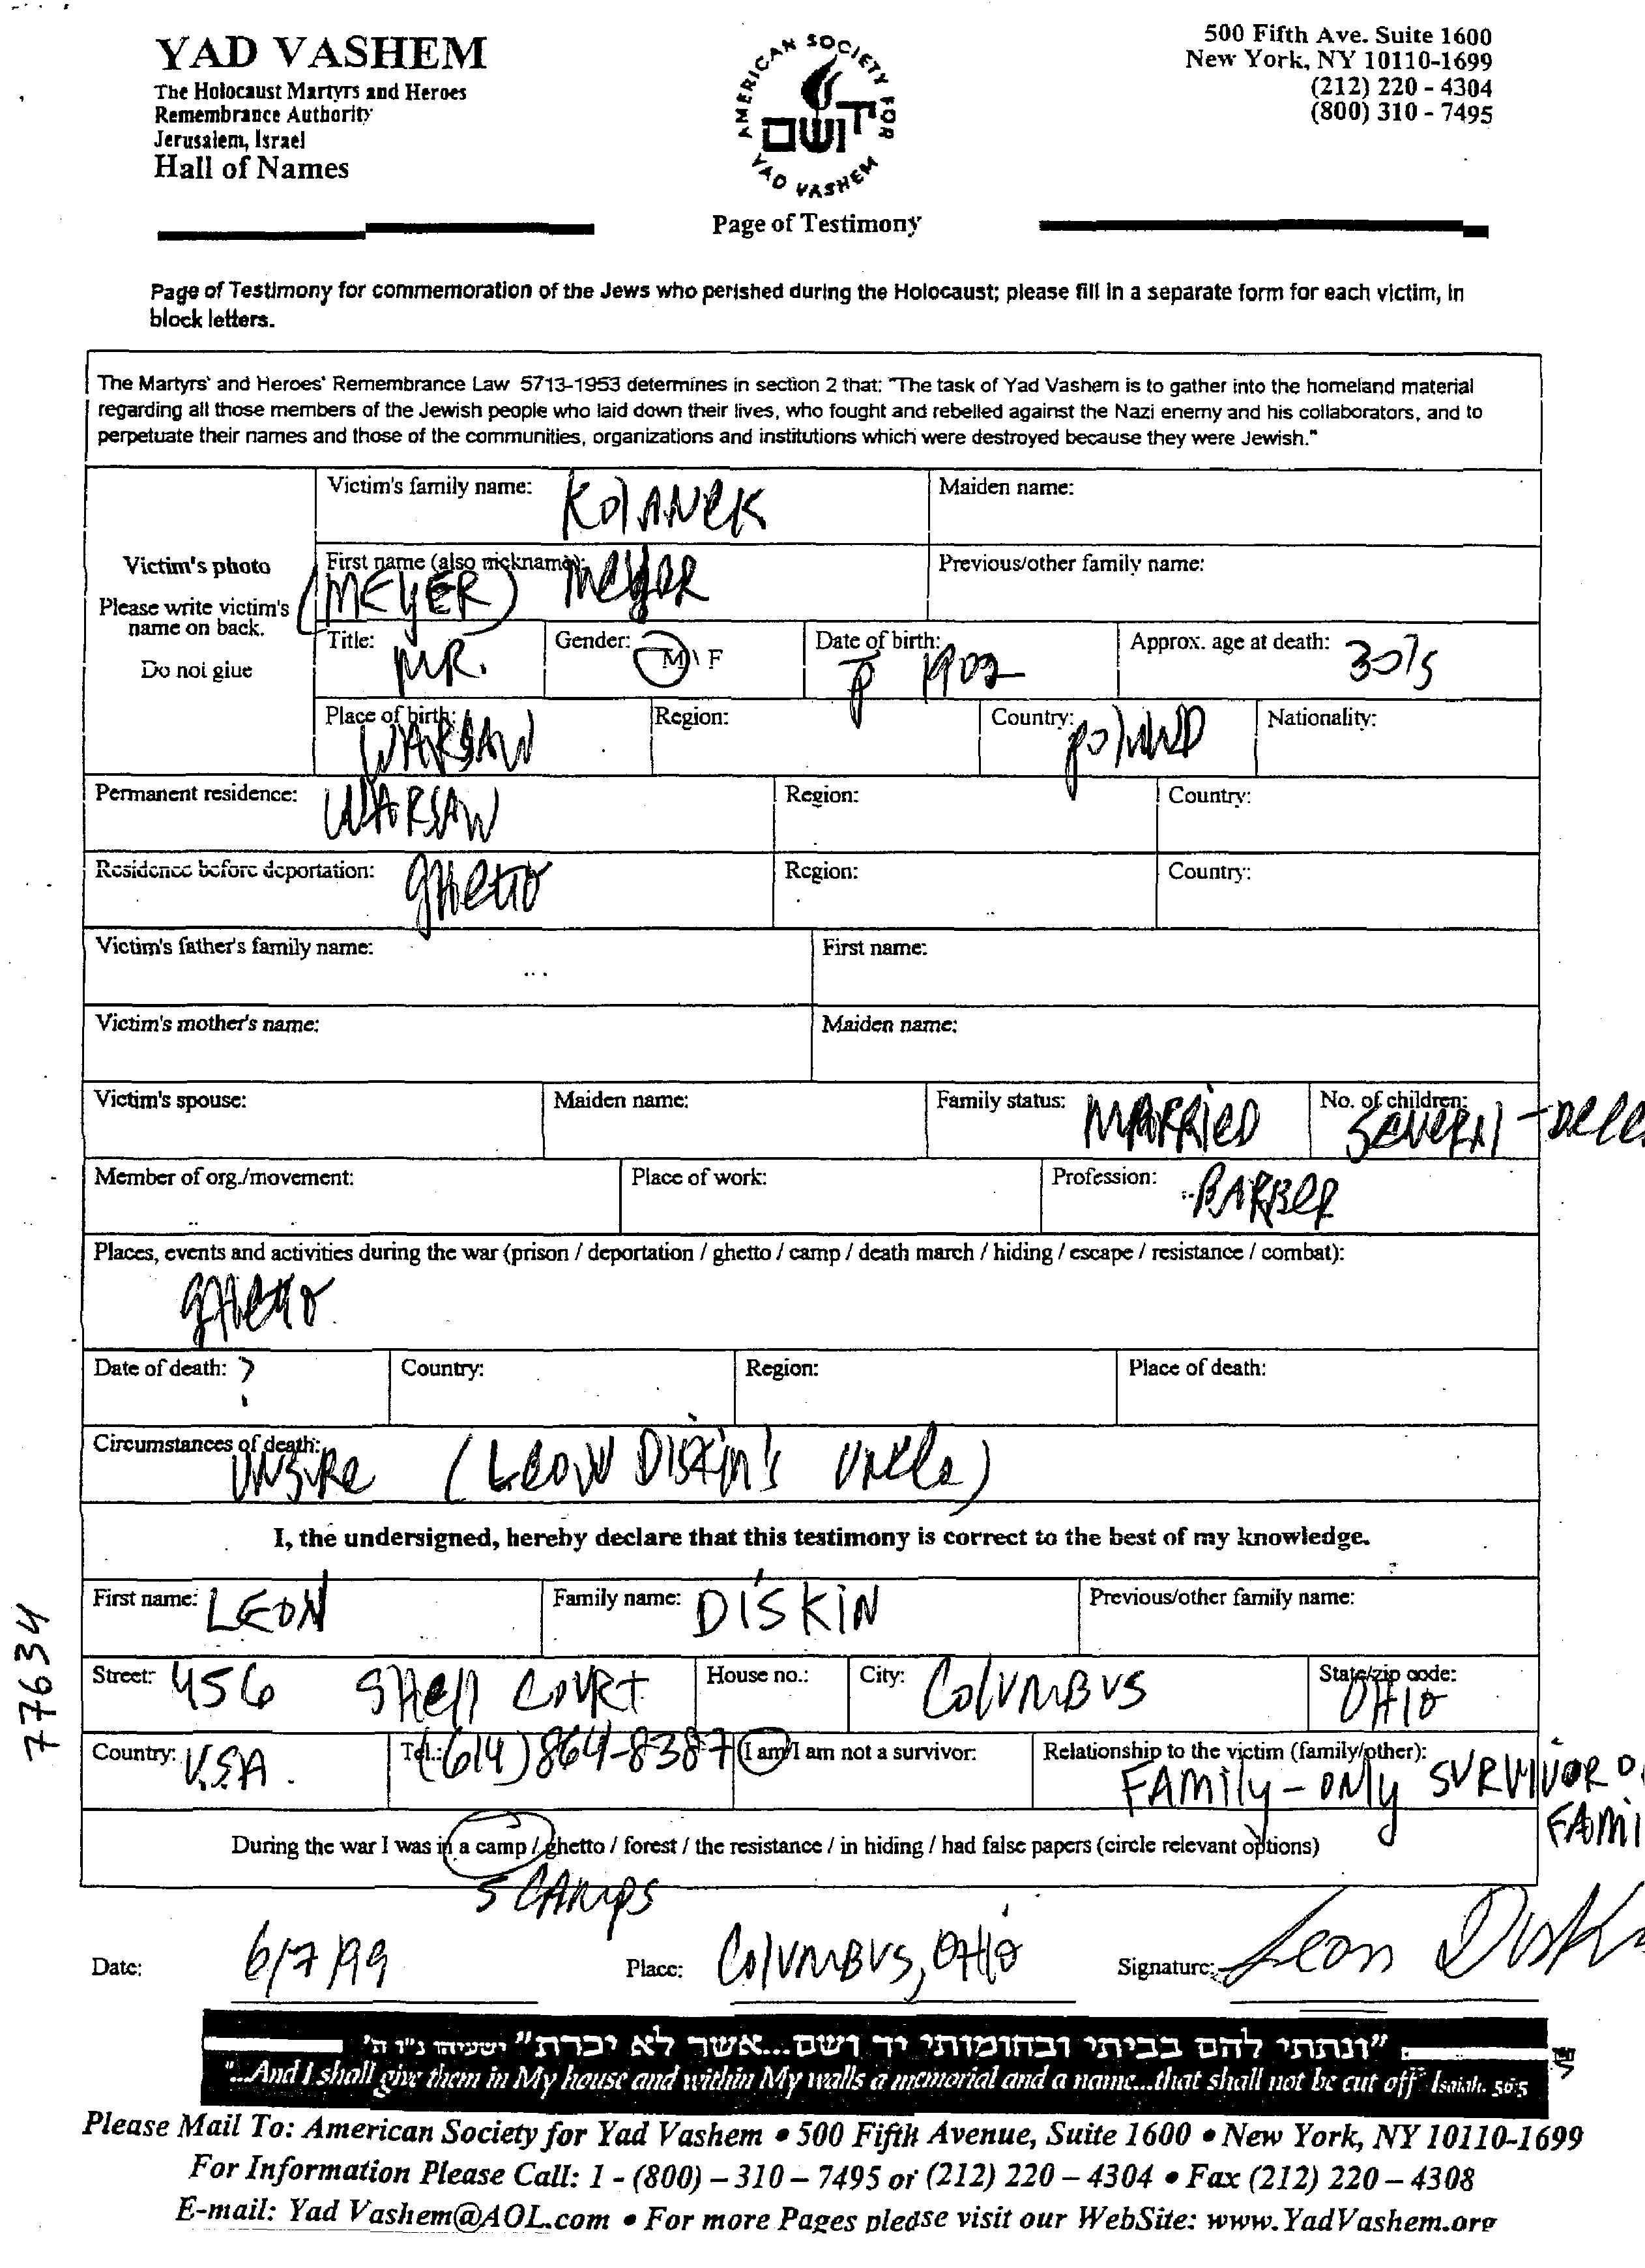 YAD VASHEM
The Holocaust Martyrs and Heroes
Remembrance Authority
Jerusalem, Israel
Hall of Names
AMERICAN SOCIETY FOR YAD VASHEM
יד ושם
Page of Testimony
500 Fifth Ave. Suite 1600
New York, NY 10110-1699
(212) 220 - 4304
(800) 310 - 7495
Page of Testimony for commemoration of the Jews who perished during the Holocaust; please fill in a separate form for each victim, in
block letters.
The Martyrs' and Heroes' Remembrance Law 5713-1953 determines in section 2 that: "The task of Yad Vashem is to gather into the homeland material
regarding all those members of the Jewish people who laid down their lives, who fought and rebelled against the Nazi enemy and his collaborators, and to
perpetuate their names and those of the communities, organizations and institutions which were destroyed because they were Jewish."
Victim's photo
Please write victim's
name on back.
Do not glue
Victim's family name: KOlANEK Maiden name:
First name (also nickname): (MEYER) MEYER Previous/other family name:
Title: MR. Gender: M \ F Date of birth: 1902 Approx. age at death: 30's
Place of birth: WARSAW Region: Country: POlAND Nationality:
Permanent residence: WARSAW Region: Country:
Residence before deportation: GHETTO Region: Country:
Victim's father's family name: First name:
Victim's mother's name: Maiden name:
Victim's spouse: Maiden name: Family status: MARRiED No. of children: SEVERAl -
Member of org./movement: Place of work: Profession: BARBER
Places, events and activities during the war (prison / deportation / ghetto / camp / death march / hiding / escape / resistance / combat):
GHETTO
Date of death: ? Country: Region: Place of death:
Circumstances of death: UNSURE (LEON DISKIN'S UNCLE)
I, the undersigned, hereby declare that this testimony is correct to the best of my knowledge.
First name: LEON Family name: DiSKiN Previous/other family name:
Street: 456 SHEll COURT House no.: City: COlUMBUS State/zip code: OHIO
Country: U.S.A. Tel.: (614) 864-8387 I am/I am not a survivor: Relationship to the victim (family/other): FAMily - ONly SURVIVOR O
FAMI
During the war I was in a camp / ghetto / forest / the resistance / in hiding / had false papers (circle relevant options)
5 CAMPS
Date: 6/7/99 Place: COlUMBUS, OHIO Signature: Leon Disk
77634
"ונתתי להם בביתי ובחומותי יד ושם...אשר לא יכרת" ישעיהו נ"ו ה'
"...And I shall give them in My house and within My walls a memorial and a name...that shall not be cut off" Isaiah. 56:5
Please Mail To: American Society for Yad Vashem • 500 Fifth Avenue, Suite 1600 • New York, NY 10110-1699
For Information Please Call: 1 - (800) – 310 – 7495 or (212) 220 – 4304 • Fax (212) 220 – 4308
E-mail: Yad Vashem@AOL.com • For more Pages please visit our WebSite: www.YadVashem.org